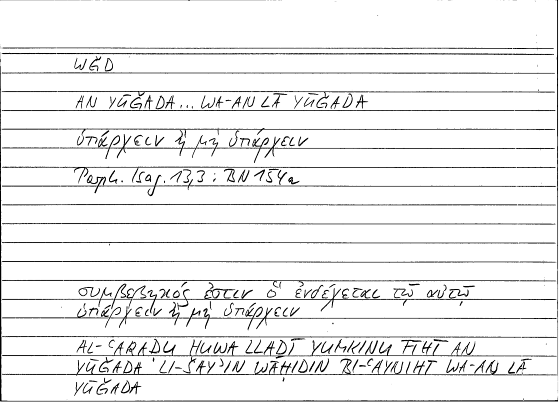 WǦD
AN YŪǦADA... WA-AN LĀ YŪǦADA
ὑπάρχειν ἢ μὴ ὑπάρχειν
Porph. Isag. 13,3 : BN 154a
συμβεβηκός ἐστιν ὃ ἐνδέχεται τῷ αὐτῷ
ὑπάρχειν ἢ μὴ ὑπάρχειν
AL-ʿARAḌU HUWA LLAḎĪ YUMKINU FĪHI AN
YŪǦADA LI-ŠAYʾIN WĀḤIDIN BI-ʿAYNIHĪ WA-AN LĀ
YŪǦADA